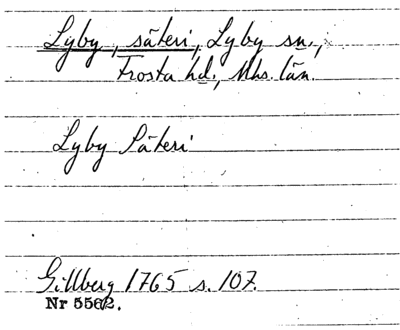 Lyby, säteri, Lyby sn.,
Frosta hd., Mhs. län.
Lyby Säteri
Gillberg 1765 s. 107.
Nr 5562.